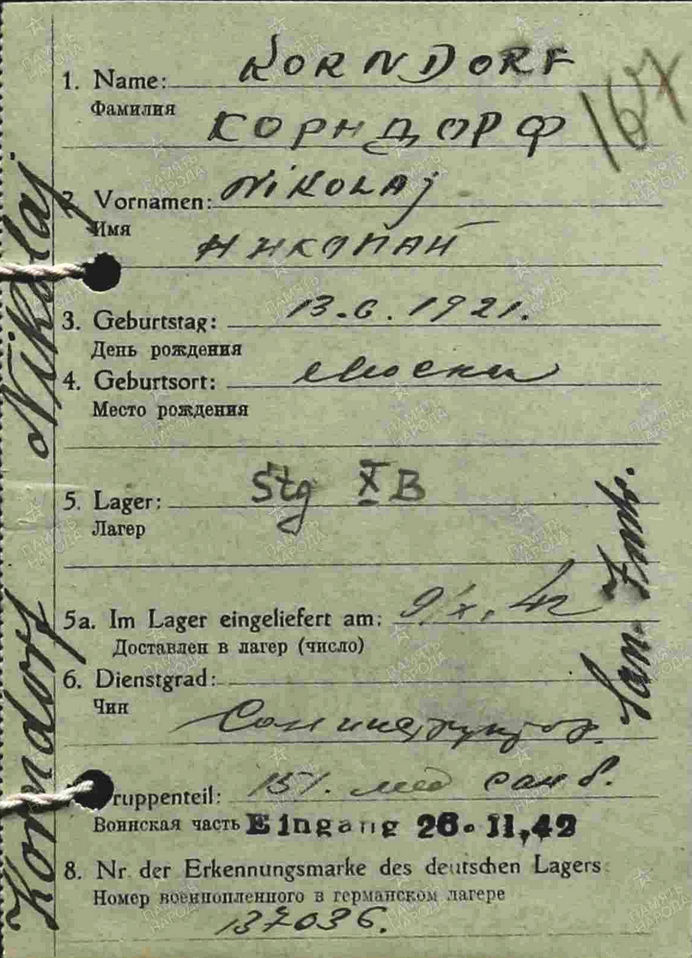 1. Name: KORNDORF
Фамилия
КОРНДОРФ
167
2. Vornamen: NiKOLAj
Имя
НИКОЛАЙ
3. Geburtstag: 13.6.1921.
День рождения
4. Geburtsort: Москва
Место рождения
5. Lager: Stg X B
Лагер
5a. Im Lager eingeliefert am: 9/X. 42
Доставлен в лагер (число)
6. Dienstgrad:
Чин
Сан инструктор.
Truppenteil: 151. мед сан б.
Воинская часть Eingang 26.11,42
8. Nr. der Erkennungsmarke des deutschen Lagers:
Номер военнопленного в германском лагере
137036.
Korndorf Nikolaj
San.
ПАМЯТЬ НАРОДА